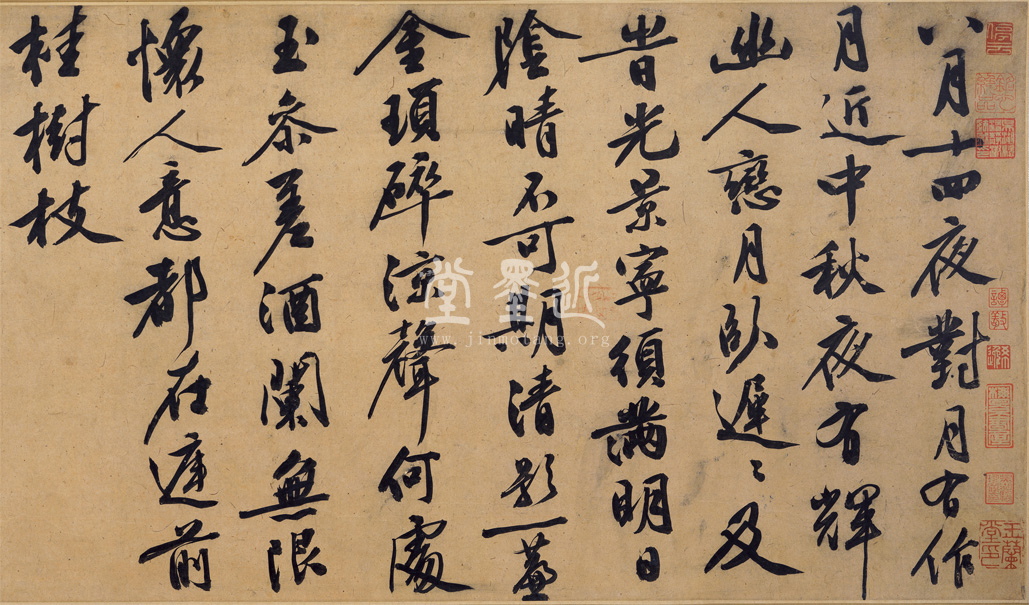 八月十四夜對月有作
月近中秋夜有輝
幽人戀月臥遲〻及
旹光景寧須滿明日
陰晴不可期清影一簾
金瑣碎涼聲何處
玉參差酒闌無限
懷人意都在庭前
桂樹枝
近墨堂
www.jinmotang.org
玉蘭
堂印